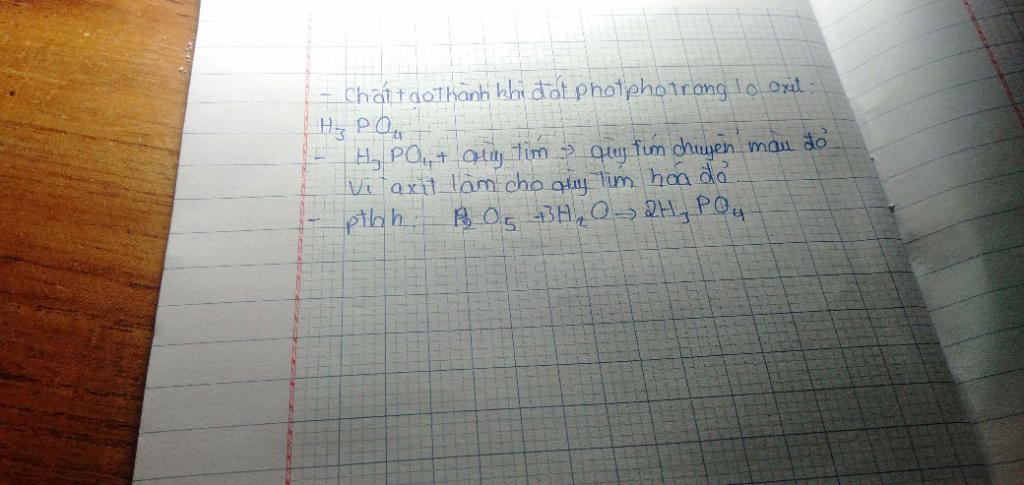 - Chất tạo thành khi đốt photpho trong lọ oxit:
H₃PO₄
- H₃PO₄ + quỳ tím → quỳ tím chuyển màu đỏ
Vì axit làm cho quỳ tím hóa đỏ.
- pthh: P₂O₅ + 3H₂O → 2H₃PO₄